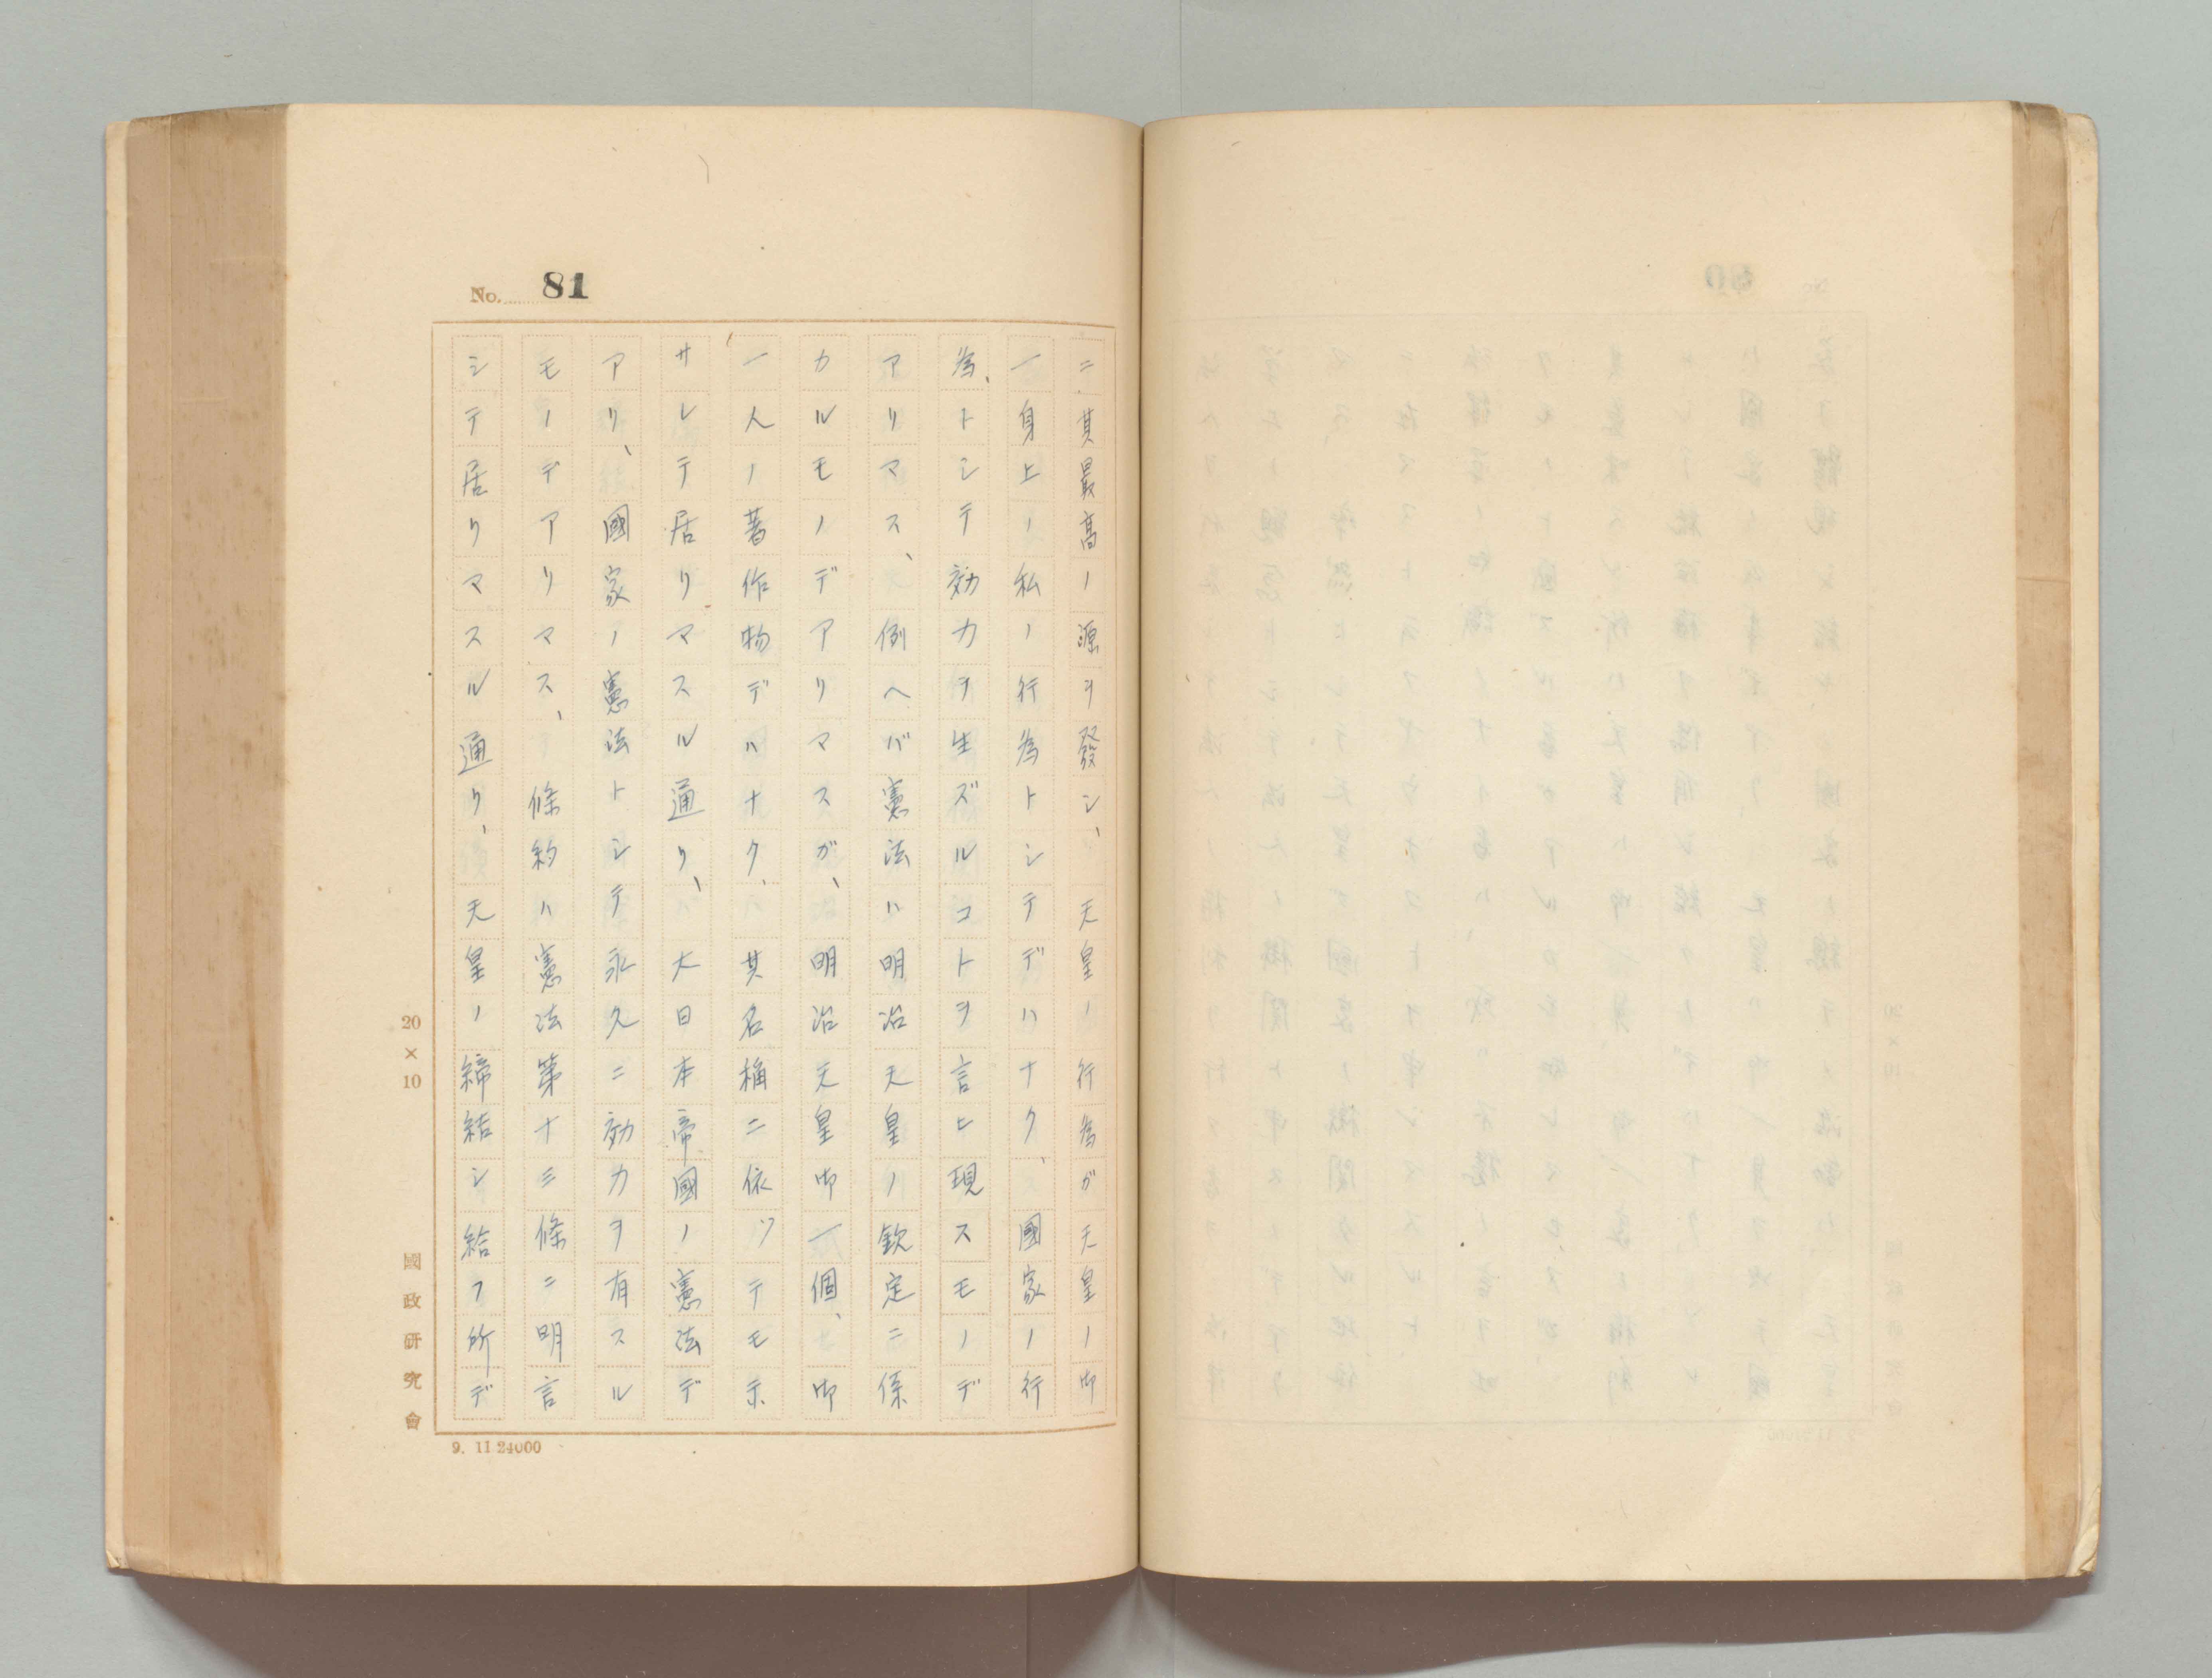 No. 81
ニ其最高ノ源ヲ發シ、天皇ノ行為ガ天皇ノ御
一身上ノ私ノ行為トシテデハナク、國家ノ行
為、トシテ効力ヲ生ズルコトヲ言ヒ現スモノデ
アリマス、例ヘバ憲法ハ明治天皇ノ欽定ニ係
カルモノデアリマスガ、明治天皇御一個、御
一人ノ著作物デハナク、其名稱ニ依ツテモ示
サレテ居リマスル通リ、大日本帝國ノ憲法デ
アリ、國家ノ憲法トシテ永久ニ効力ヲ有スル
モノデアリマス、條約ハ憲法第十三條ニ明言
シテ居リマスル通リ、天皇ノ締結シ給フ所デ
20×10
國政研究會
9. 11 24000